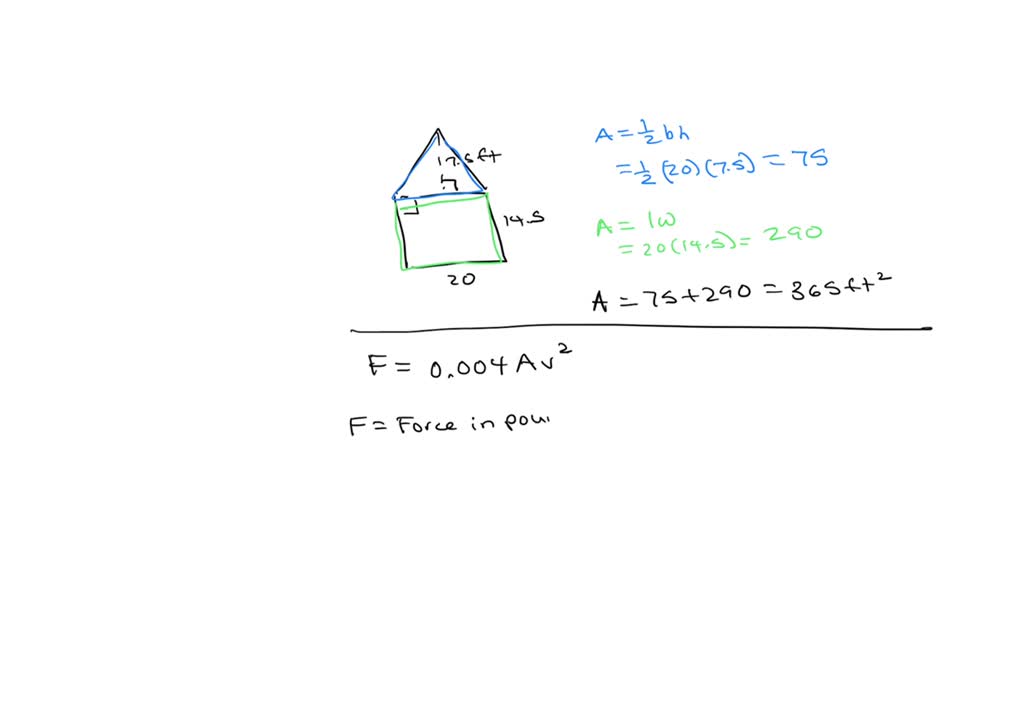 7.5ft
14.5
20
A = 1/2 bh
= 1/2 (20)(7.5) = 75
A = lw
= 20(14.5) = 290
A = 75+290 = 365ft²
F = 0.004Av²
F = Force in pou